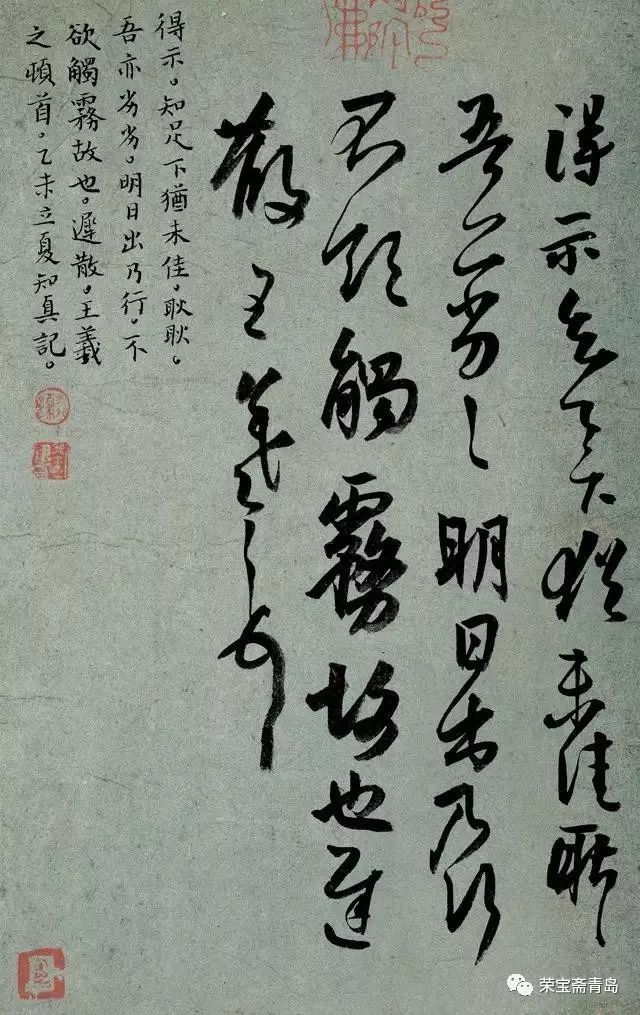 得示知足下猶未佳耿耿
吾亦劣劣明日出乃行
不欲觸霧故也遲
散王羲之頓首
得示。知足下猶未佳,耿耿。
吾亦劣劣。明日出乃行。不
欲觸霧故也。遲散。王羲
之頓首。乙未立夏知真記。
荣宝斋青岛